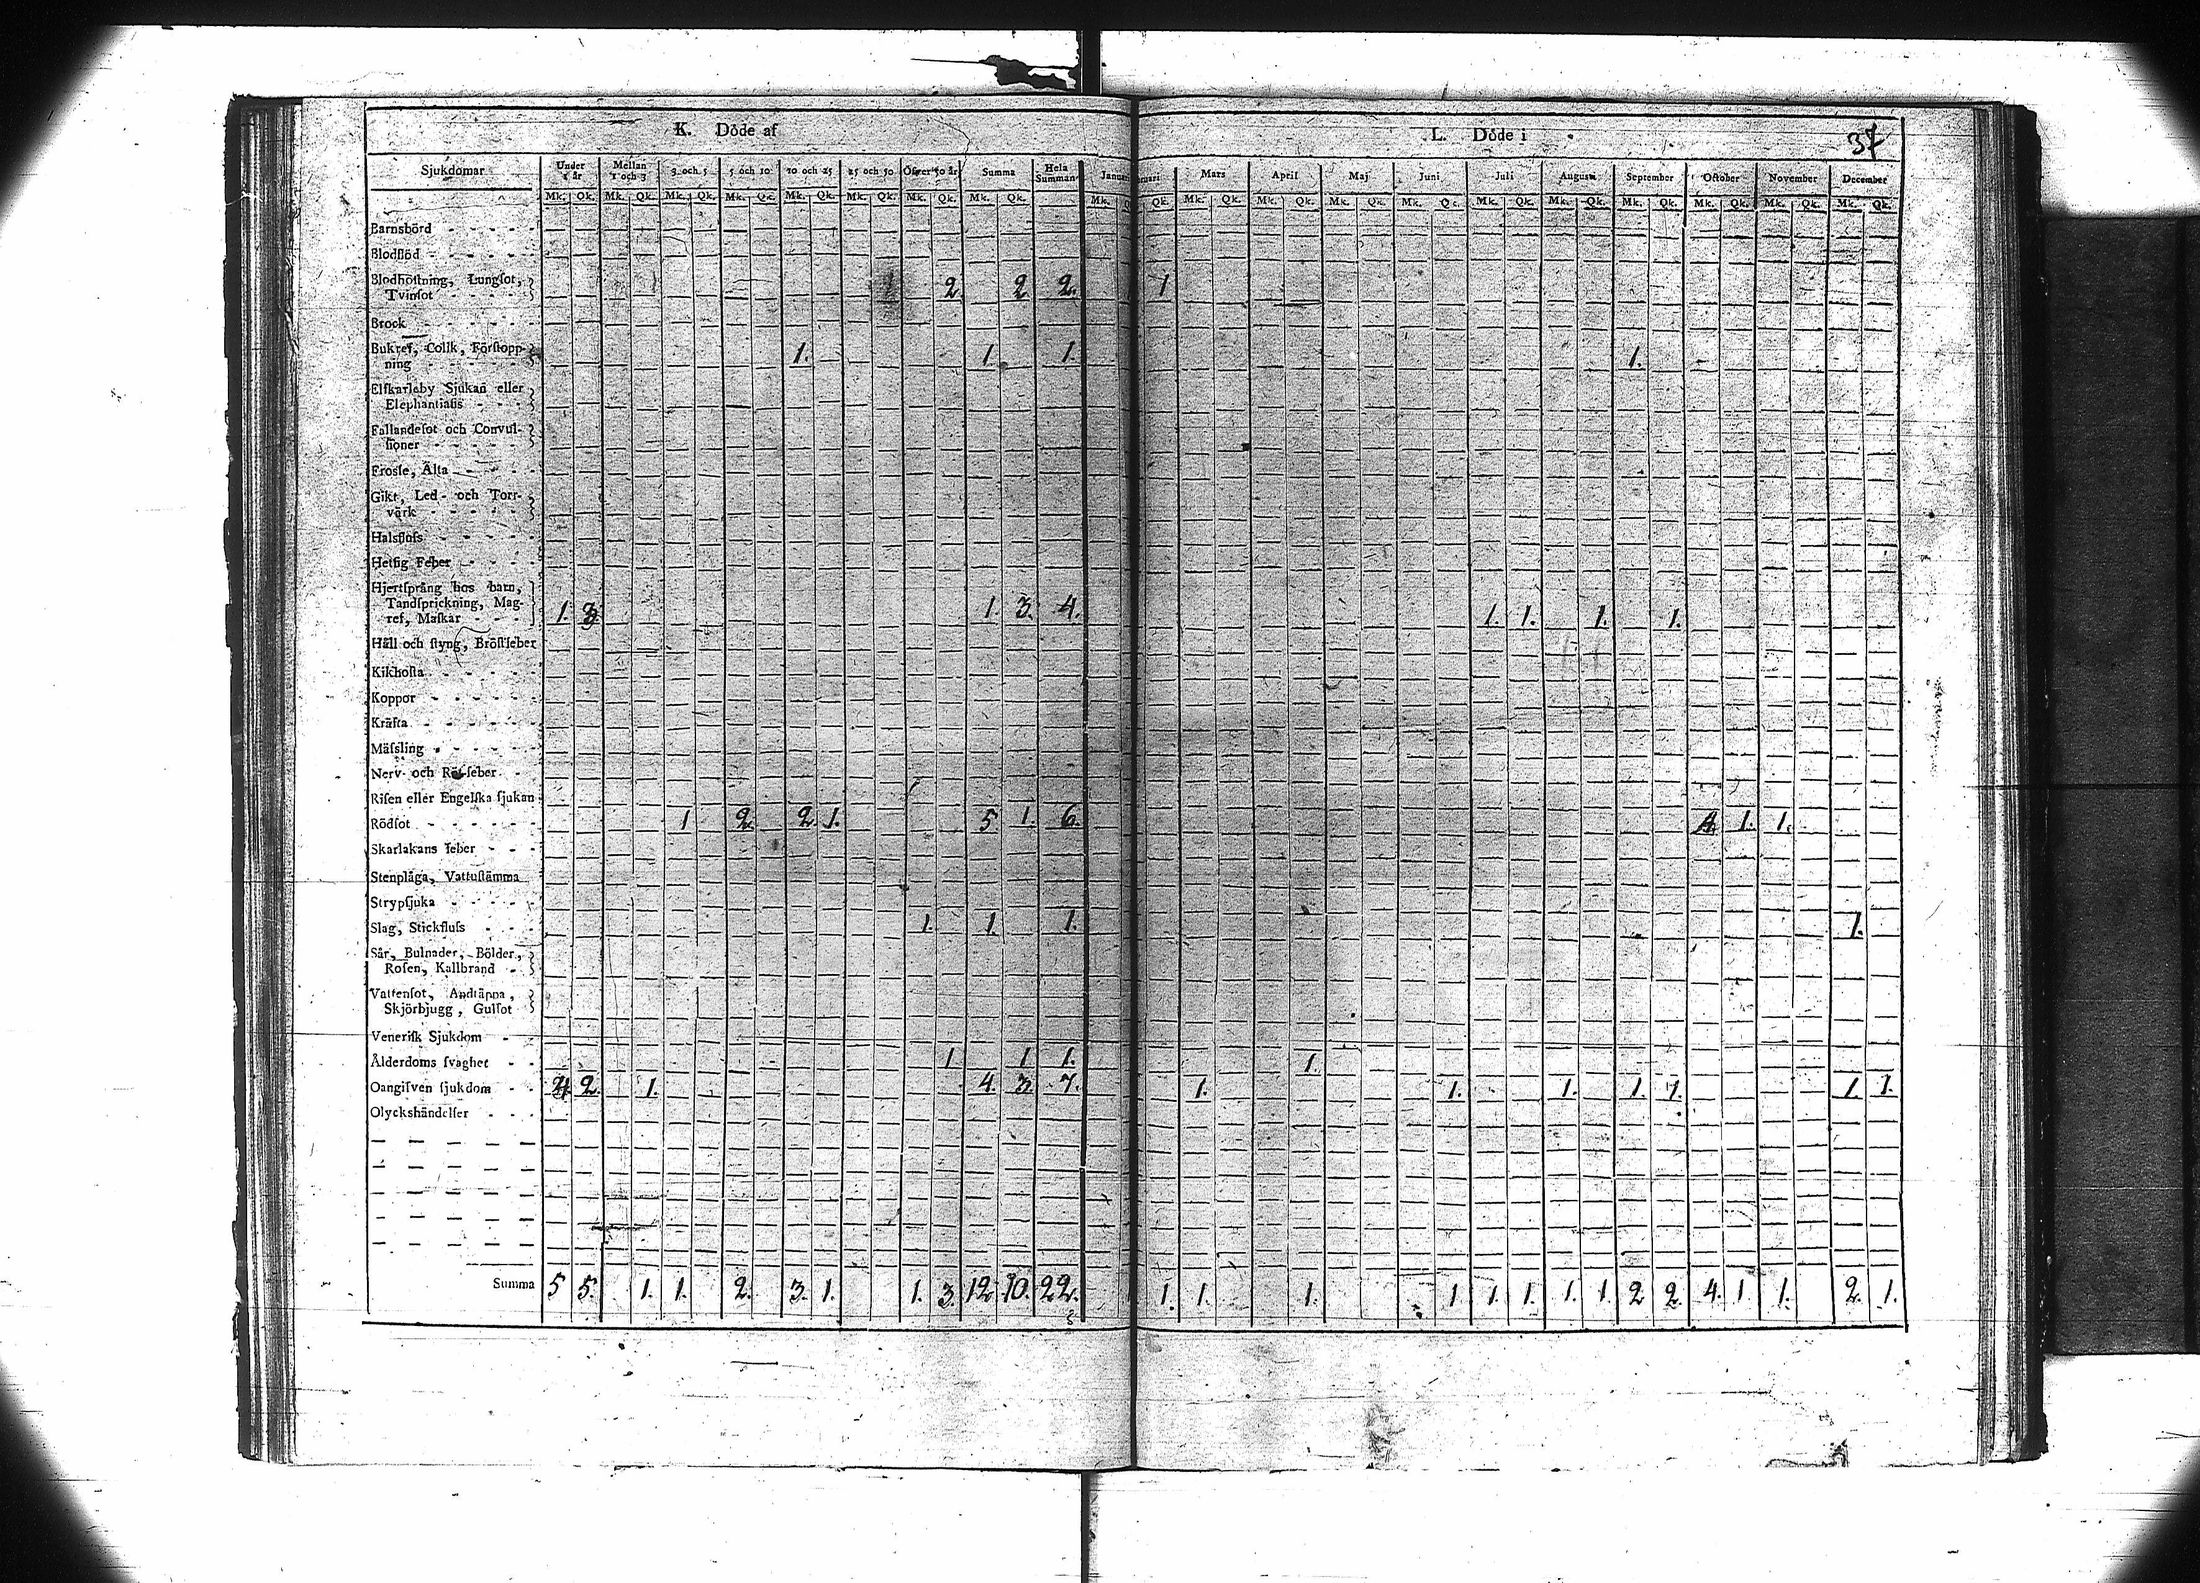 K. Döde af
L. Döde i
37
Sjukdomar Under 1 år Mellan 1 och 3 3 och 5 5 och 10 10 och 25 25 och 50 Öfver 50 år Summa Hela Summan Januari Mars April Maj Juni Juli Augusti September October November December
Mk. Qk. Mk. Qk. Mk. Qk. Mk. Qk. Mk. Qk. Mk. Qk. Mk. Qk. Mk. Qk. Mk. Qk. Mk. Qk. Mk. Qk. Mk. Qk. Mk. Qk. Mk. Qk. Mk. Qk. Mk. Qk. Mk. Qk. Mk. Qk. Mk. Qk.
Barnsbörd
Blodflöd
Blodhostning, Lungsot,
Tvinsot 2 2 2. 1
Brock
Bukref, Colik, Förstopp-
ning 1. 1. 1. 1.
Elfkarleby Sjukan eller
Elephantiasis
Fallandesot och Convul-
sioner
Frossa, Älta
Gikt, Led- och Torr-
värk
Halsfluss
Hetsig Feber
Hjertsprång hos barn,
Tandsprickning, Mag-
ref, Maskar 1. 3 1. 3. 4. 1. 1. 1. 1.
Håll och styng, Bröstfeber
Kikhosta
Koppor
Kräfta
Mässling
Nerv- och Rötfeber
Risen eller Engelska sjukan
Rödsot 1 2 2. 1. 5 1. 6. 4 1. 1.
Skarlakans feber
Stenplåga, Vattustämma
Strypsjuka
Slag, Stickfluss 1. 1. 1. 1.
Sår, Bulnader, Bölder,
Rosen, Kallbrand
Vattensot, Andtäppa,
Skjörbjugg, Gulsot
Venerisk Sjukdom
Ålderdoms svaghet 1 1 1. 1.
Oangifven sjukdom 4 2. 1. 4. 3 7. 1. 1. 1. 1. 1. 1. 1.
Olyckshändelser
Summa 5 5. 1. 1. 2. 3. 1. 1. 3. 12 10. 22. 1. 1. 1. 1 1. 1. 1. 1. 2 2. 4. 1 1. 2. 1.